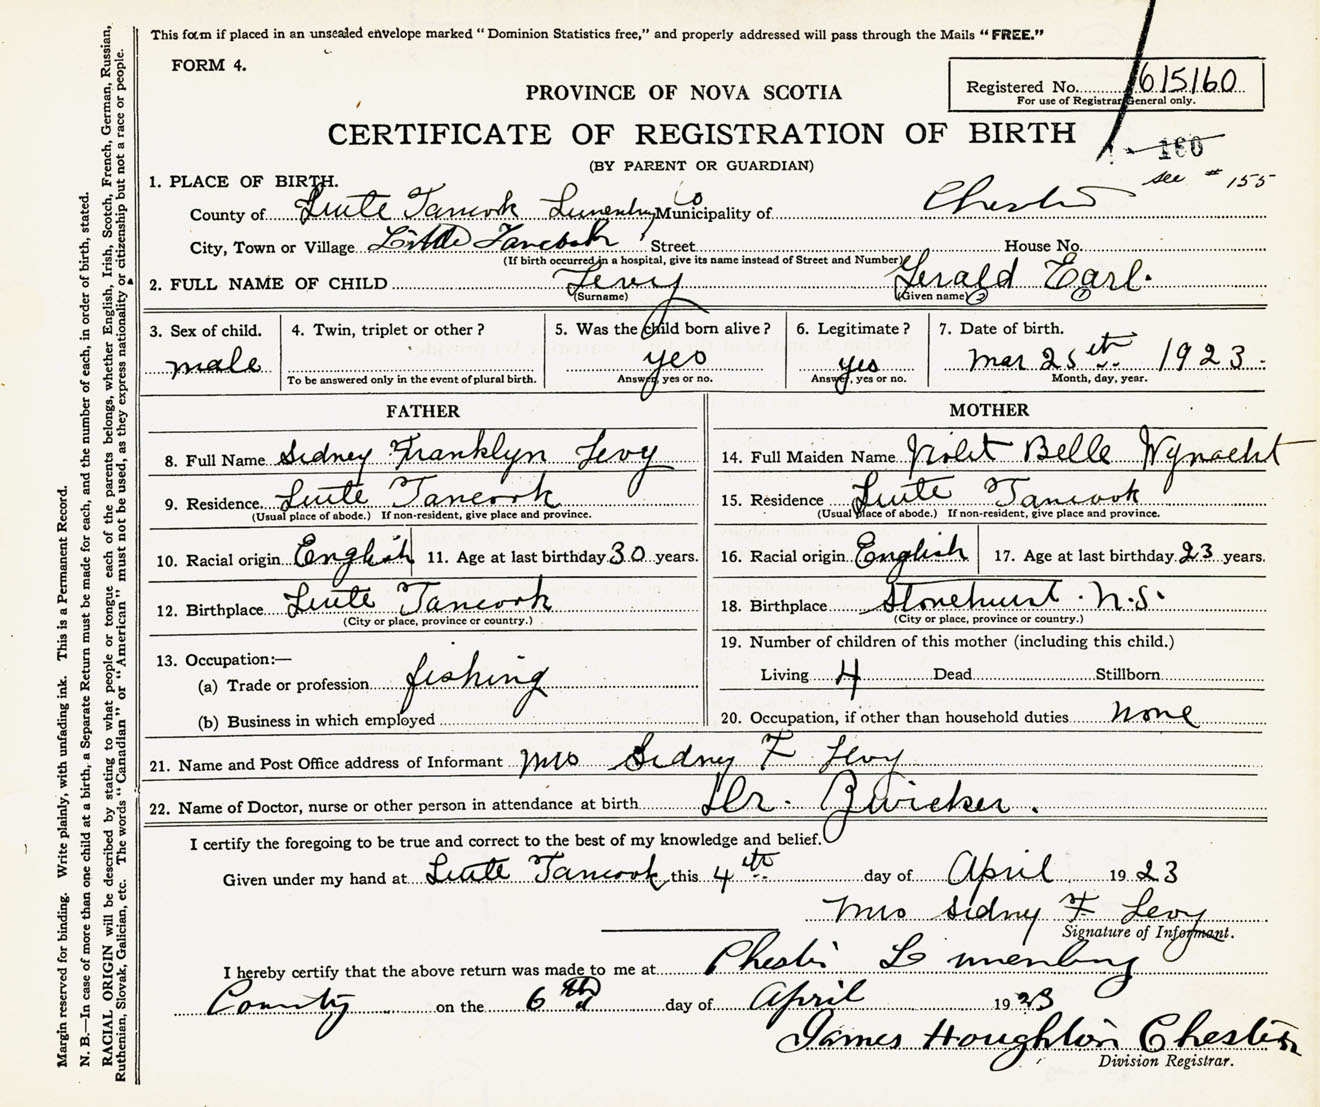 This form if placed in an unsealed envelope marked "Dominion Statistics free," and properly addressed will pass through the Mails "FREE."
FORM 4.
Registered No. 615160
For use of Registrar General only.
PROVINCE OF NOVA SCOTIA
CERTIFICATE OF REGISTRATION OF BIRTH
160
(BY PARENT OR GUARDIAN)
see # 155
1. PLACE OF BIRTH.
County of Little Tancook Lunenburg Co Municipality of Chester
City, Town or Village Little Tancook Street House No.
(If birth occurred in a hospital, give its name instead of Street and Number)
2. FULL NAME OF CHILD Levy Gerald Earl.
(Surname) (Given name) 2 1
3. Sex of child. 4. Twin, triplet or other? 5. Was the child born alive? 6. Legitimate? 7. Date of birth.
male yes yes Mar 25th 1923.
To be answered only in the event of plural birth. Answer, yes or no. Answer, yes or no. Month, day, year.
FATHER MOTHER
8. Full Name Sidney Franklyn Levy 14. Full Maiden Name Violet Belle Wynacht
9. Residence. Little Tancook 15. Residence Little Tancook
(Usual place of abode.) If non-resident, give place and province. (Usual place of abode.) If non-resident, give place and province.
10. Racial origin English 11. Age at last birthday 30 years. 16. Racial origin English 17. Age at last birthday 23 years.
12. Birthplace Little Tancook 18. Birthplace Stonehurst. N.S.
(City or place, province or country.) (City or place, province or country.)
13. Occupation:— 19. Number of children of this mother (including this child.)
(a) Trade or profession fishing Living 4 Dead Stillborn
(b) Business in which employed 20. Occupation, if other than household duties none
21. Name and Post Office address of Informant Mrs Sidney F Levy
22. Name of Doctor, nurse or other person in attendance at birth Dr. Zwicker.
I certify the foregoing to be true and correct to the best of my knowledge and belief.
Given under my hand at Little Tancook this 4th day of April 1923
Mrs Sidney F Levy
Signature of Informant.
I hereby certify that the above return was made to me at Chester Lunenburg
County on the 6th day of April 1923
James Houghton Chester
Division Registrar.
Margin reserved for binding. Write plainly, with unfading ink. This is a Permanent Record.
N. B.—In case of more than one child at a birth, a Separate Return must be made for each, and the number of each, in order of birth, stated.
RACIAL ORIGIN will be described by stating to what people or tongue each of the parents belongs, whether English, Irish, Scotch, French, German, Russian,
Ruthenian, Slovak, Galician, etc. The words "Canadian" or "American" must not be used, as they express nationality or citizenship but not a race or people.